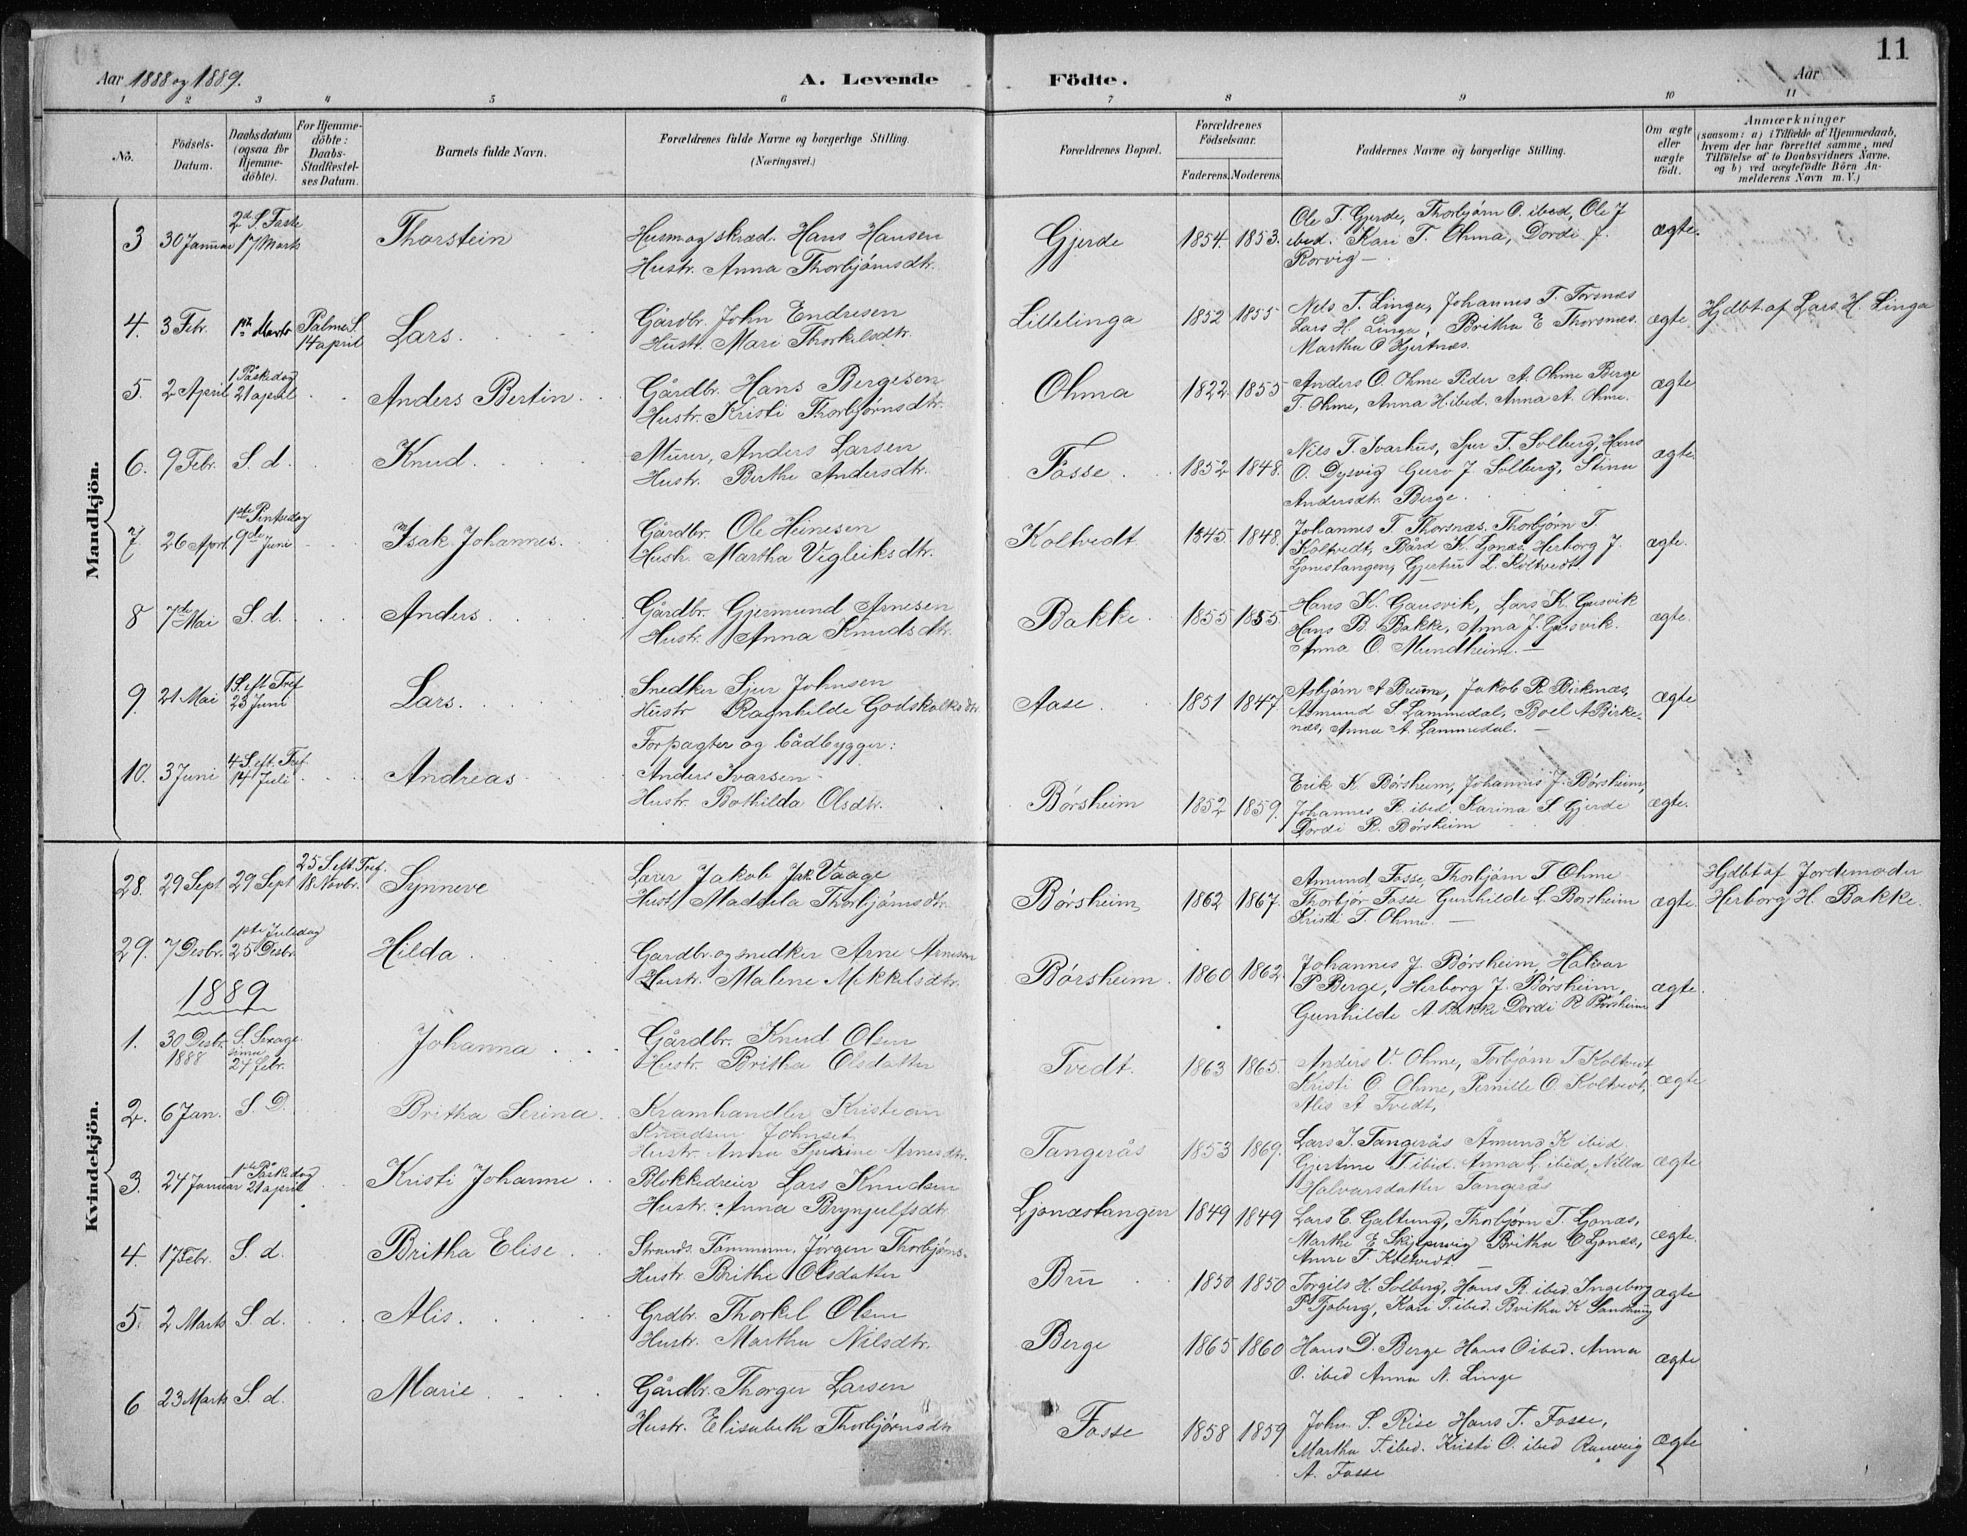 11
Aar 1888 og 1889.
A. Levende Födte.
Aar
1 2 3 4 5 6 7 8 9 10 11
No.
Födsels-Datum.
Daabsdatum (ogsaa for Hjemmedöbte).
For Hjemmedöbte: Daabs-Stadfestelses Datum.
Barnets fulde Navn.
Forældrenes fulde Navne og borgerlige Stilling. (Næringsvei.)
Forældrenes Bopæl.
Forældrenes Födselsaar.
Faderens. Moderens.
Faddernes Navne og borgerlige Stilling.
Om ægte eller uægte födt.
Anmærkninger
(saasom: a) i Tilfælde af Hjemmedaab, hvem der har forrettet samme, med Tilföielse af to Daabsvidners Navne, og b) ved uægtefödte Börn Anmelderens Navn m. V.)
Mandkjön.
3 30 Januar 2d. S. Faste 17 Marts Thorstein
Husm og skræd. Hans Hansen
Hustr. Anna Thorbjörnsdtr.
Gjerde 1854. 1853.
Ole T. Gjerde, Thorbjørn O. ibed, Ole J
ibed. Kari T. Ohma, Dordi J.
Rorvig —
ægte.
4. 3 Febr. 1ste Marts Palme S. 14 april Lars.
Gårdbr. John Endresen
Hustr. Mari Thorkelsdtr.
Lillelinga 1852 1855
Nils T. Linga, Johannes T. Torsnæs
Lars H. Linga, Britha E Thorsnæs.
Martha O Hjertnæs.
ægte. Hjdbt af Lars H. Linga
5. 2 April 1 Påskedag 21 april Anders Bertin
Gårdbr. Hans Bergesen
Hustr. Kristi Thorbjørnsdtr.
Ohma 1822 1855
Anders O. Ohme Peder A. Ohme Berge
T. Ohme, Anna H. ibed. Anna A. Ohme.
ægte
6. 9 Febr. S. d. Knud.
Murer, Anders Larsen
Hustr. Berthe Andersdtr.
Fosse. 1852 1848.
Nils T. Svarhus, Sjur T. Solberg, Hans
O. Dysvig Guro J. Solberg, Stina
Andersdtr. Berge.
ægte.
7 26 April 1ste Pintsedag 9de Juni Isak Johannes.
Gårdbr. Ole Heinesen
Hustr. Martha Vigleiksdtr.
Koltvedt 1845 1848.
Johannes T Thorsnæs. Thorbjørn T.
Koltvedt, Bård K. Ljonæs, Herborg J.
Ljonestangen, Gjertru L. Koltvedt
ægte.
8 7de Mai S. d. Anders.
Gårdbr. Gjermund Arnesen
Hustr. Anna Knudsdtr.
Bakke. 1855 1855
Hans K. Gausvik, Lars K. Gausvik
Hans B. Bakke, Anna J. Gausvik.
Anna O. Mundheim. —
ægte.
9. 21 Mai 1 S. eft Tref 23 Juni Lars.
Snedker Sjur Johnsen
Hustr Ragnhilde Godskalksdtr
Aase. 1851 1847
Asbjørn A Breum, Jakob R Birknæs,
Asmund S Lammedal, Boel A Birke-
næs, Anna A. Lammedal. —
ægte
10. 3 Juni 4 S. eft. Tref. 14 Juli Andreas
Forpagter og bådbygger:
Anders Ivarsen
Hustr. Bothilda Olsdtr.
Børsheim 1852 1859.
Erik K Børsheim, Johannes J. Børsheim,
Johannes R. ibed. Karina S. Gjerde
Dordi R. Børsheim
ægte.
Kvindekjön.
28. 29 Sept 29 Sept 25 S eft. Tref. 18 Novbr. Synneve
Lærer Jakob Jak Vaage
Hustr Madsela Thorbjørnsdtr.
Børsheim 1862 1867.
Amund Fosse, Thorbjørn T Ohme
Thorbjør Fosse Gunhilde L. Borsheim
Kristi T Ohme. —
ægte. Hjdbt af Jordemoder
Herborg H. Bakke.
29. 7 Desbr. 1ste Juledag 25 Desbr. Hilda
Gardbr. og snedker Arne Arnesen
Hustr. Malene Mikkelsdtr.
Børsheim. 1860 1862.
Johannes J. Børsheim, Halvar
P Berge, Herborg J. Børsheim,
Gunhilde A Bakke Dordi R Børsheim
ægte.
1889
1. 30 Desbr. 1888 S. Sexagesima 24 febr. Johanna
Gårdbr. Knud Olsen
Hustr. Britha Olsdatter
Tvedt. 1863 1865.
Anders V. Ohme, Torbjørn T Koltvedt
Kristi O. Ohme, Pernille O Koltvedt,
Alis A Tvedt,
ægte
2. 6 Jan. S. D. Britha Serina.
Kramhandler Kristian
Knudsen Johnset
Hustr. Anna Arnesdtr.
Tangerås 1853 1869.
Lars J. Tangerås Åmund K ibid.
Gjertine T. ibid. Anna L. ibid, Nilla
Halvarsdatter Tangerås
ægte
3. 24 Januar 1ste Påskedag 21 april Kristi Johanne
Blokkdreier Lars Knudsen
Hustr. Anna Brynjulfsdtr.
Ljonæstangen 1849 1849
Lars E. Galtung, Thorbjørn T. Ljonæs,
Marthe E Skjelnevig Britha O Ljonæs,
Anne T. Koltvedt
ægte.
4. 17 Febr. S. d. Britha Elise
Strands. Tømmerm. Jørgen Thorbjørns.
Hustr Brithe Olsdatter
Bru 1850 1850
Torgils H. Solberg, Hans R. ibed. Ingeborg
P Fjøberg, Kari T. ibed. Britha K
ægte
5. 2 Marts S. d. Alis.
Grdbr. Thorkel Olsen
Hustr. Martha Nilsdtr.
Berge 1865 1860
Hans D. Berge Hans O ibed. Anna
O. ibed Anna N. Linge
ægte
6 23 Marts S. d. Marie
Gårdbr. Thorger Larsen
Hustr. Elisabeth Thorbjørnsdtr
Fosse 1858 1859
John S. Rise Hans T. Fosse,
Martha T. ibed. Kristi O. ibed Ranveig
A. Fosse
ægte